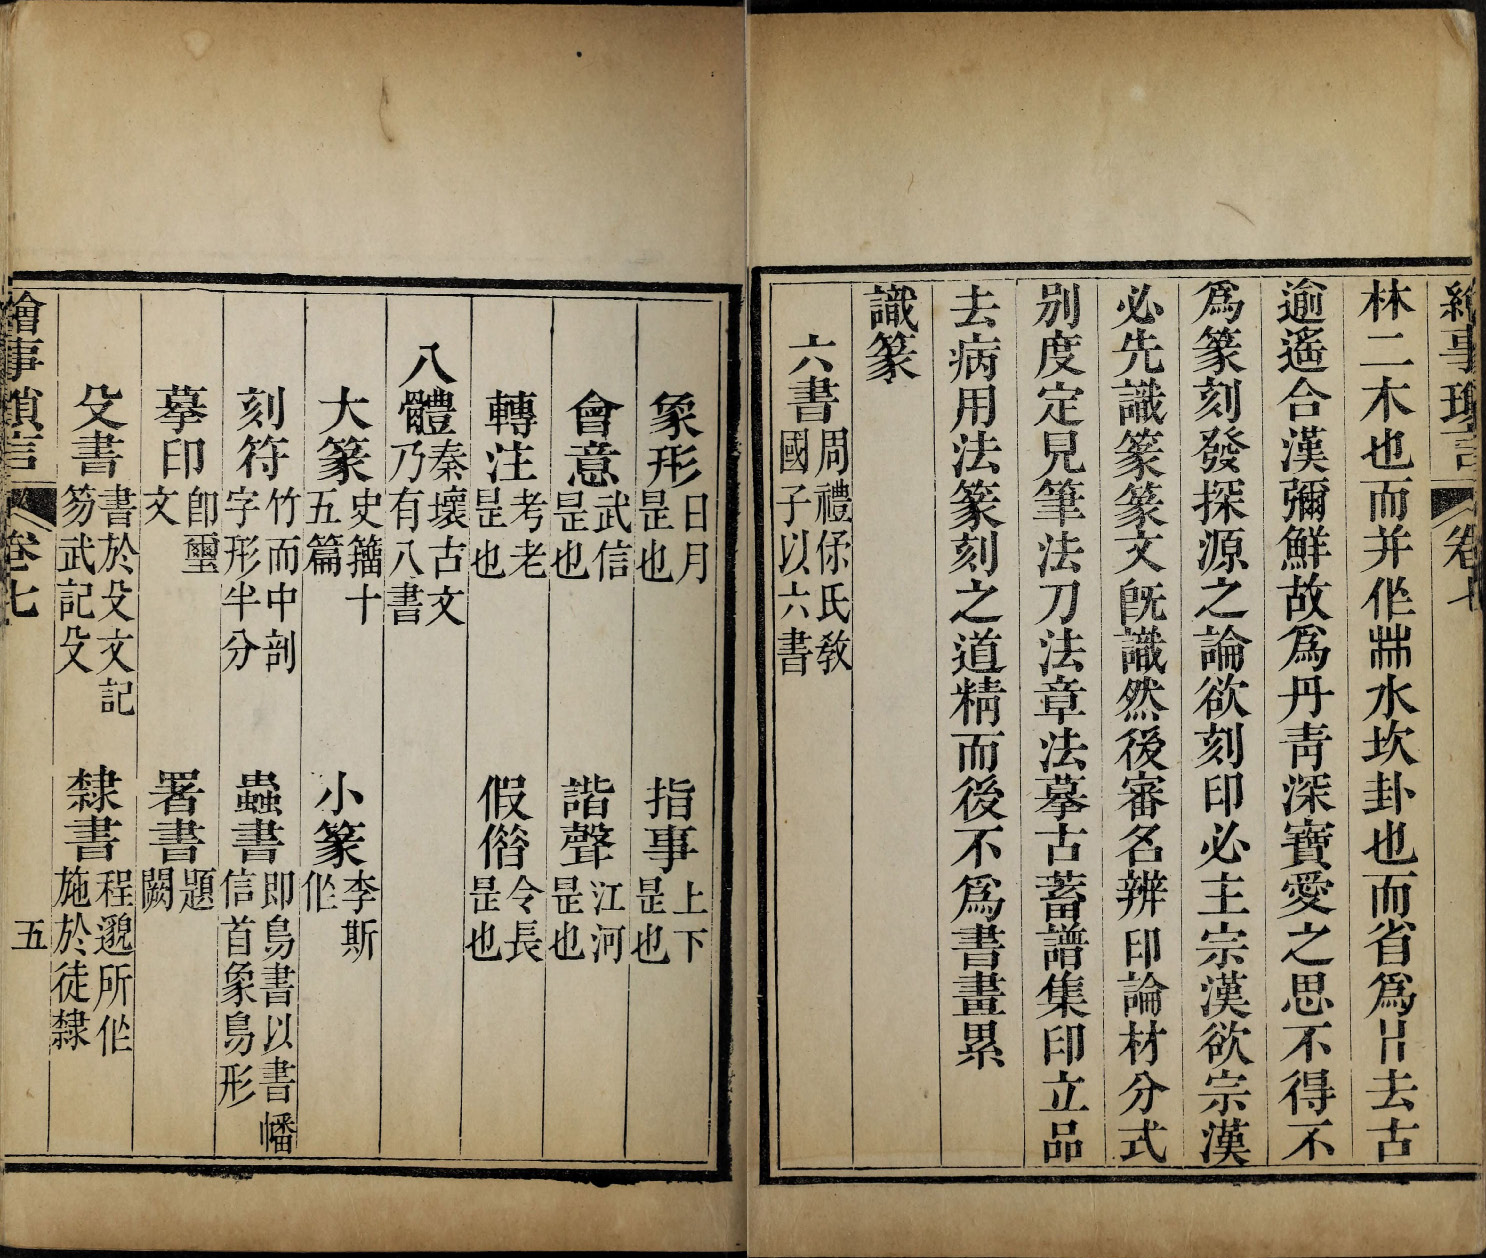 繪事瑣言 卷七
林二木也而并作𣏟水坎卦也而省爲〢〢去古
逾遙合漢彌鮮故爲丹靑深寶愛之思不得不
爲篆刻發探源之論欲刻印必主宗漢欲宗漢
必先識篆篆文旣識然後審名辨印論材分式
別度定見筆法刀法章法摹古蓄譜集印立品
去病用法篆刻之道精而後不爲書畫累
識篆
六書周禮保氏敎
國子以六書
象形日月
是也
指事上下
是也
會意武信
是也
諧聲江河
是也
轉注考老
是也
假俗令長
是也
八體秦壞古文
乃有八書
大篆史籀十
五篇
小篆李斯
作
刻符竹而中剖
字形半分
蟲書卽鳥書以書幡
信首象鳥形
摹印卽璽
文
署書題
闕
殳書書於殳文記
笏武記殳
隸書程邈所作
施於徒隸
繪事瑣言 卷七 五